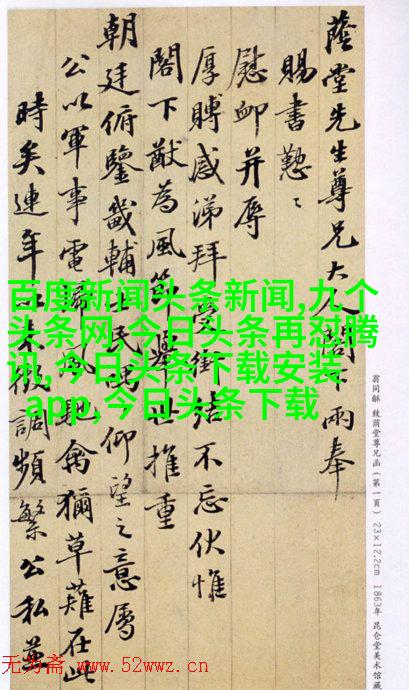 蔭堂先生尊兄大人閣下兩奉
賜書懃〻
慰卹并辱
厚賻感涕拜登銜結不忘伏惟
閣下猷為風節舉世推重
朝廷俯鑒畿輔士民喁仰望之意屬
公以軍事電歸風馳禽獮草薙在此
時矣連年以來徵調頻繁公私並
百度新闻头条新闻,九个
头条网,今日头条再怼腾
讯,今日头条下载安装
app,今日头条下载
翁同龢 致荫堂尊兄函（第一頁） 23×12.2cm 1863年 昆仑堂美术馆藏
无为斋 www.52wwz.cn